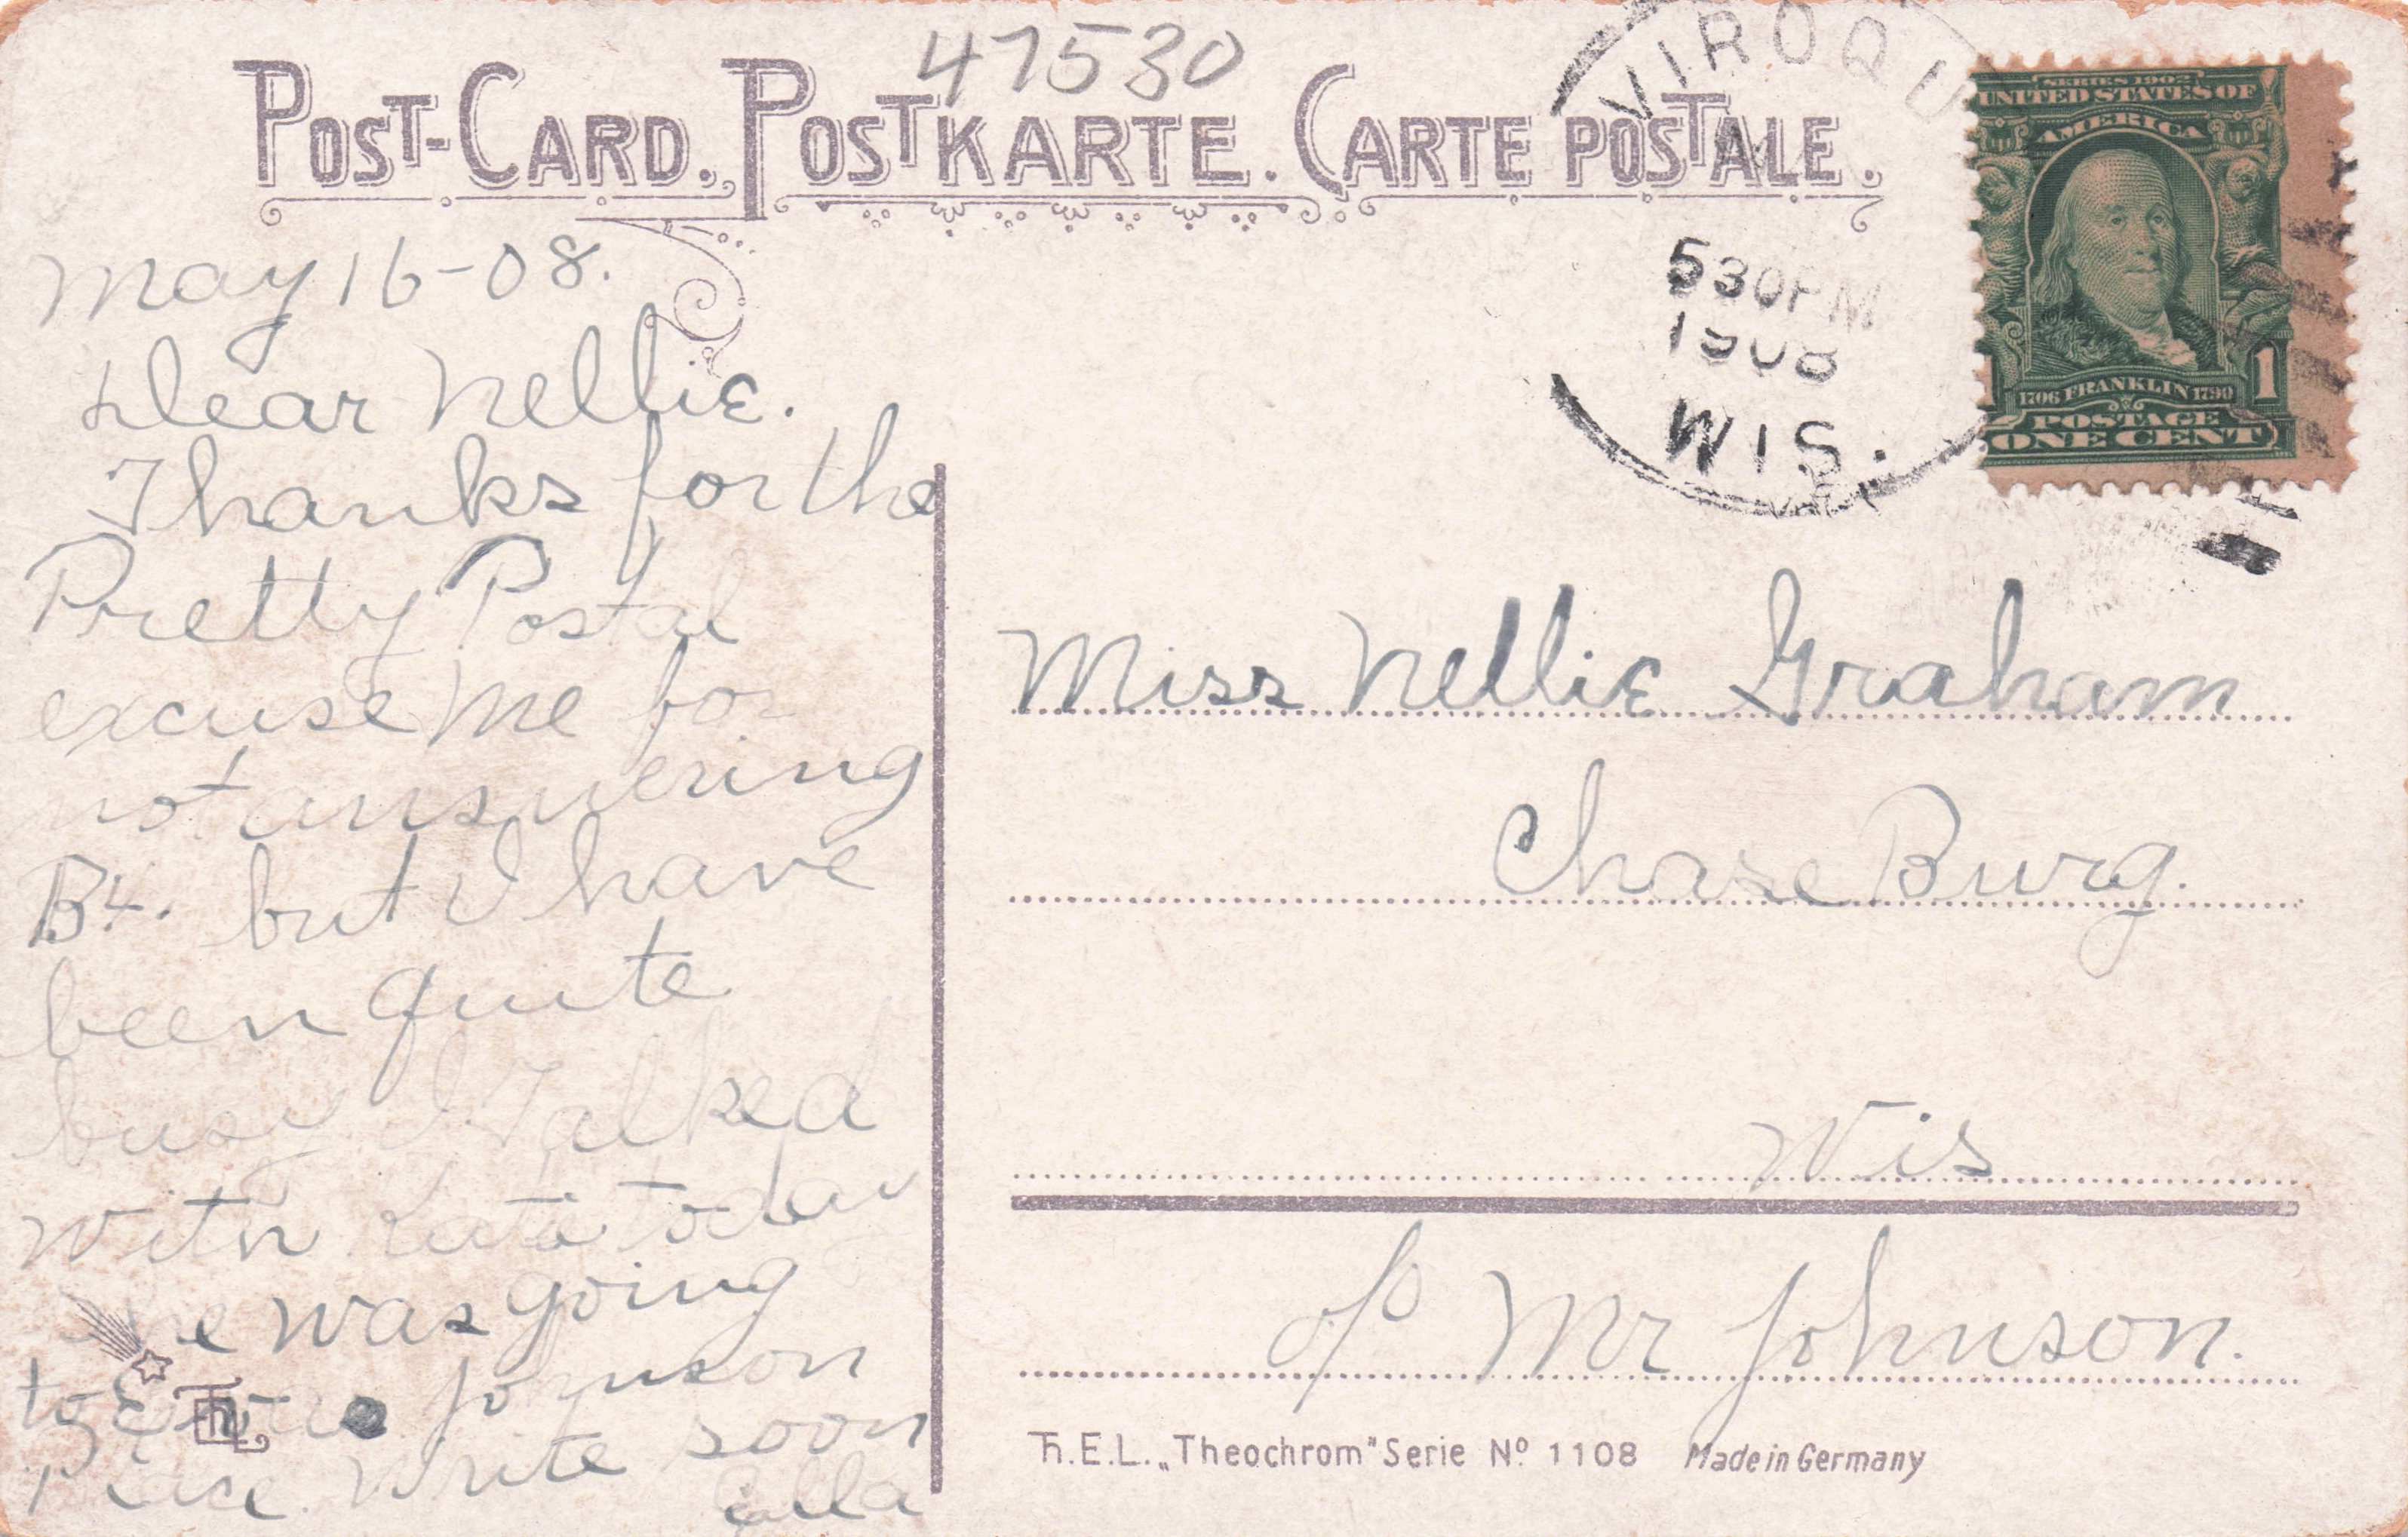 47530
POST-CARD. POSTKARTE. CARTE POSTALE.
VIROQU
530PM
1908
WIS.
SERIES 1902
UNITED STATES OF
AMERICA
1706 FRANKLIN 1790
1 1
POSTAGE
ONE CENT
May 16-08.
Dear Nellie.
Thanks for the
Pretty Postal
excuse me for
not answering
B4. but I have
been quite
busy. I Talked
with Kate today
was going
to Johnson
write soon
Ella
Miss Nellie Graham
Chase Burg.
Wis
c/o Mr Johnson.
Th.E.L. „Theochrom" Serie No. 1108 Made in Germany